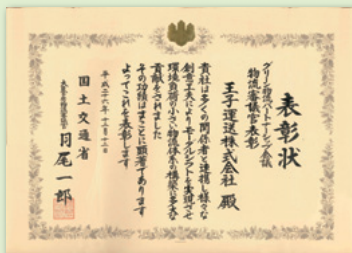 表彰状
グリーン物流パートナーシップ会議
物流審議官表彰
王子運送株式会社 殿
貴社は多くの関係者と連携し様々な
創意工夫によりモーダルシフトを実現させ
環境負荷の小さい物流体系の構築に多大な
貢献をされました
その功績はまことに顕著であります
よってこれを表彰します
平成二十六年十二月十二日
国土交通省
大臣官房物流審議官 羽尾一郎